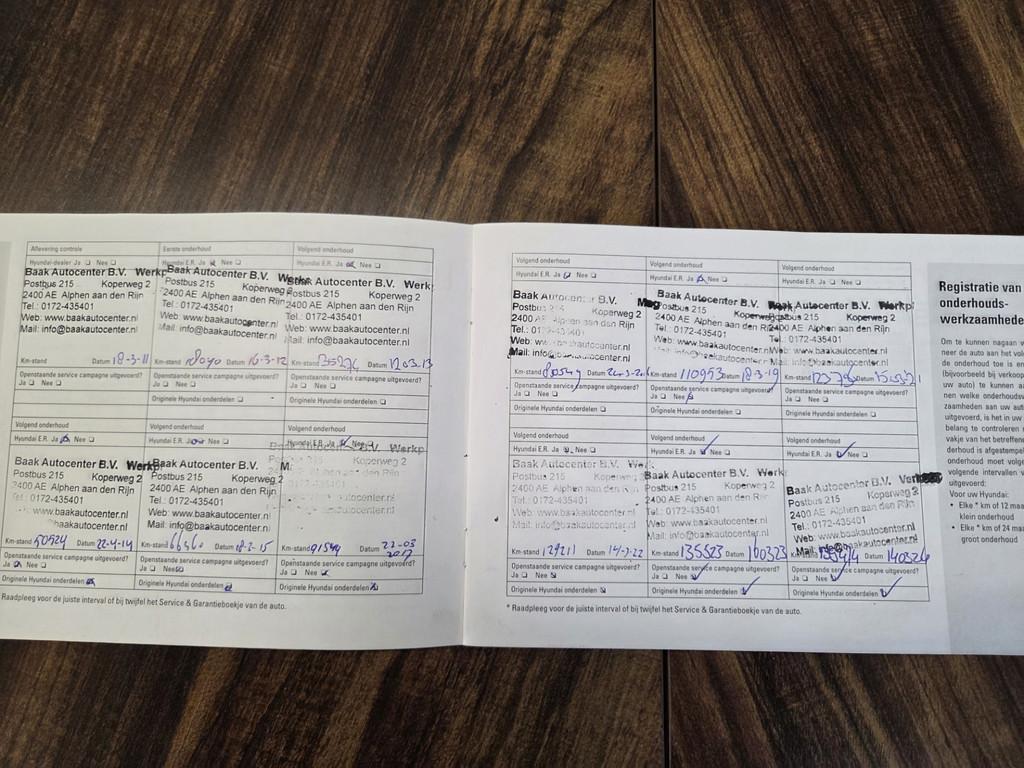 Aflevering controle
Hyundai-dealer Ja ❑ Nee ❑
Baak Autocenter B.V. Werkp
Postbus 215 Koperweg 2
2400 AE Alphen aan den Rijn
Tel.: 0172-435401
Web: www.baakautocenter.nl
Mail: info@baakautocenter.nl
Km-stand Datum 18-3-11
Openstaande service campagne uitgevoerd?
Ja ❑ Nee ❑
Eerste onderhoud
Hyundai E.R. Ja Nee ❑
Baak Autocenter B.V. Werkp
Postbus 215 Koperweg 2
2400 AE Alphen aan den Rijn
Tel.: 0172-435401
Web: www.baakautocenter.nl
Mail: info@baakautocenter.nl
Km-stand Datum 16-3-12
Openstaande service campagne uitgevoerd?
Ja ❑ Nee ❑
Originele Hyundai onderdelen ❑
Volgend onderhoud
Hyundai E.R. Ja Nee ❑
Baak Autocenter B.V. Werkp
Postbus 215 Koperweg 2
2400 AE Alphen aan den Rijn
Tel.: 0172-435401
Web: www.baakautocenter.nl
Mail: info@baakautocenter.nl
Km-stand Datum
Openstaande service campagne uitgevoerd?
Ja ❑ Nee ❑
Originele Hyundai onderdelen ❑
Volgend onderhoud
Hyundai E.R. Ja Nee ❑
Baak Autocenter B.V. Werkp
Postbus 215 Koperweg 2
2400 AE Alphen aan den Rijn
Tel.: 0172-435401
www.baakautocenter.nl
baakautocenter.nl
Km-stand 50524 Datum 22-4-14
Openstaande service campagne uitgevoerd?
Ja Nee
Originele Hyundai onderdelen
Volgend onderhoud
Hyundai E.R. Ja Nee ❑
Baak Autocenter B.V.
Postbus 215 Koperweg 2
2400 AE Alphen aan den Rijn
Tel.: 0172-435401
Web: www.baakautocenter.nl
Mail: info@baakautocenter.nl
Km-stand Datum 18-2-15
Openstaande service campagne uitgevoerd?
Ja ❑ Nee
Originele Hyundai onderdelen
Volgend onderhoud
Hyundai E.R. Ja Nee ❑
Koperweg 2
Km-stand Datum 22-03
2017
Openstaande service campagne uitgevoerd?
Ja ❑ Nee
Originele Hyundai onderdelen
Raadpleeg voor de juiste interval of bij twijfel het Service & Garantieboekje van de auto.
Volgend onderhoud
Hyundai E.R. Ja Nee ❑
Baak B.V.
Postbus 215 Koperweg 2
2400 AE Alphen aan den Rijn
Km-stand Datum
Openstaande service campagne uitgevoerd?
Ja ❑ Nee ❑
Originele Hyundai onderdelen ❑
Volgend onderhoud
Hyundai E.R. Ja Nee ❑
Baak Autocenter B.V.
Postbus 215
2400 AE Alphen aan den Rijn
Tel.: 0172-435401
Km-stand 110953 Datum 18-3-19
Openstaande service campagne uitgevoerd?
Ja ❑ Nee
Originele Hyundai onderdelen ❑
Volgend onderhoud
Hyundai E.R. Ja ❑ Nee ❑
Baak Autocenter B.V.
Postbus 215 Koperweg 2
2400 AE Alphen aan den Rijn
Tel.: 0172-435401
Web: www.baakautocenter.nl
Mail: info@baakautocenter.nl
Km-stand Datum
Openstaande service campagne uitgevoerd?
Ja ❑ Nee ❑
Originele Hyundai onderdelen ❑
Volgend onderhoud
Hyundai E.R. Ja Nee ❑
Baak Autocenter B.V.
Postbus 215 Koperweg 2
2400 AE Alphen aan den Rijn
Tel.: 0172-435401
Web: www.baakautocenter.nl
Mail: info@baakautocenter.nl
Km-stand Datum
Openstaande service campagne uitgevoerd?
Ja ❑ Nee
Originele Hyundai onderdelen
Volgend onderhoud
Hyundai E.R. Ja Nee ❑
Baak Autocenter B.V. Werk
Postbus 215 Koperweg 2
2400 AE Alphen aan den Rijn
Tel.: 0172-435401
Web: www.baakautocenter.nl
Mail: info@baakautocenter.nl
Km-stand 135523 Datum 100323
Openstaande service campagne uitgevoerd?
Ja ❑ Nee
Originele Hyundai onderdelen
Volgend onderhoud
Hyundai E.R. Ja Nee ❑
Baak Autocenter B.V.
Postbus 215 Koperweg 2
2400 AE Alphen aan den Rijn
Tel.: 0172-435401
Web: www.baakautocenter.nl
Datum 140324
Openstaande service campagne uitgevoerd?
Ja ❑ Nee
Originele Hyundai onderdelen
* Raadpleeg voor de juiste interval of bij twijfel het Service & Garantieboekje van de auto.
Registratie van
onderhouds-
werkzaamhede
Om te kunnen nagaan w
neer de auto aan het vol
de onderhoud toe is en
(bijvoorbeeld bij verkoop
uw auto) te kunnen a
nen welke onderhoudsw
zaamheden aan uw auto
uitgevoerd, is het in uw
belang te controleren
vakje van het betreffen
derhoud is afgestempel
onderhoud moet volge
volgende intervallen
uitgevoerd:
Voor uw Hyundai:
• Elke * km of 12 maa
klein onderhoud
• Elke * km of 24 maa
groot onderhoud